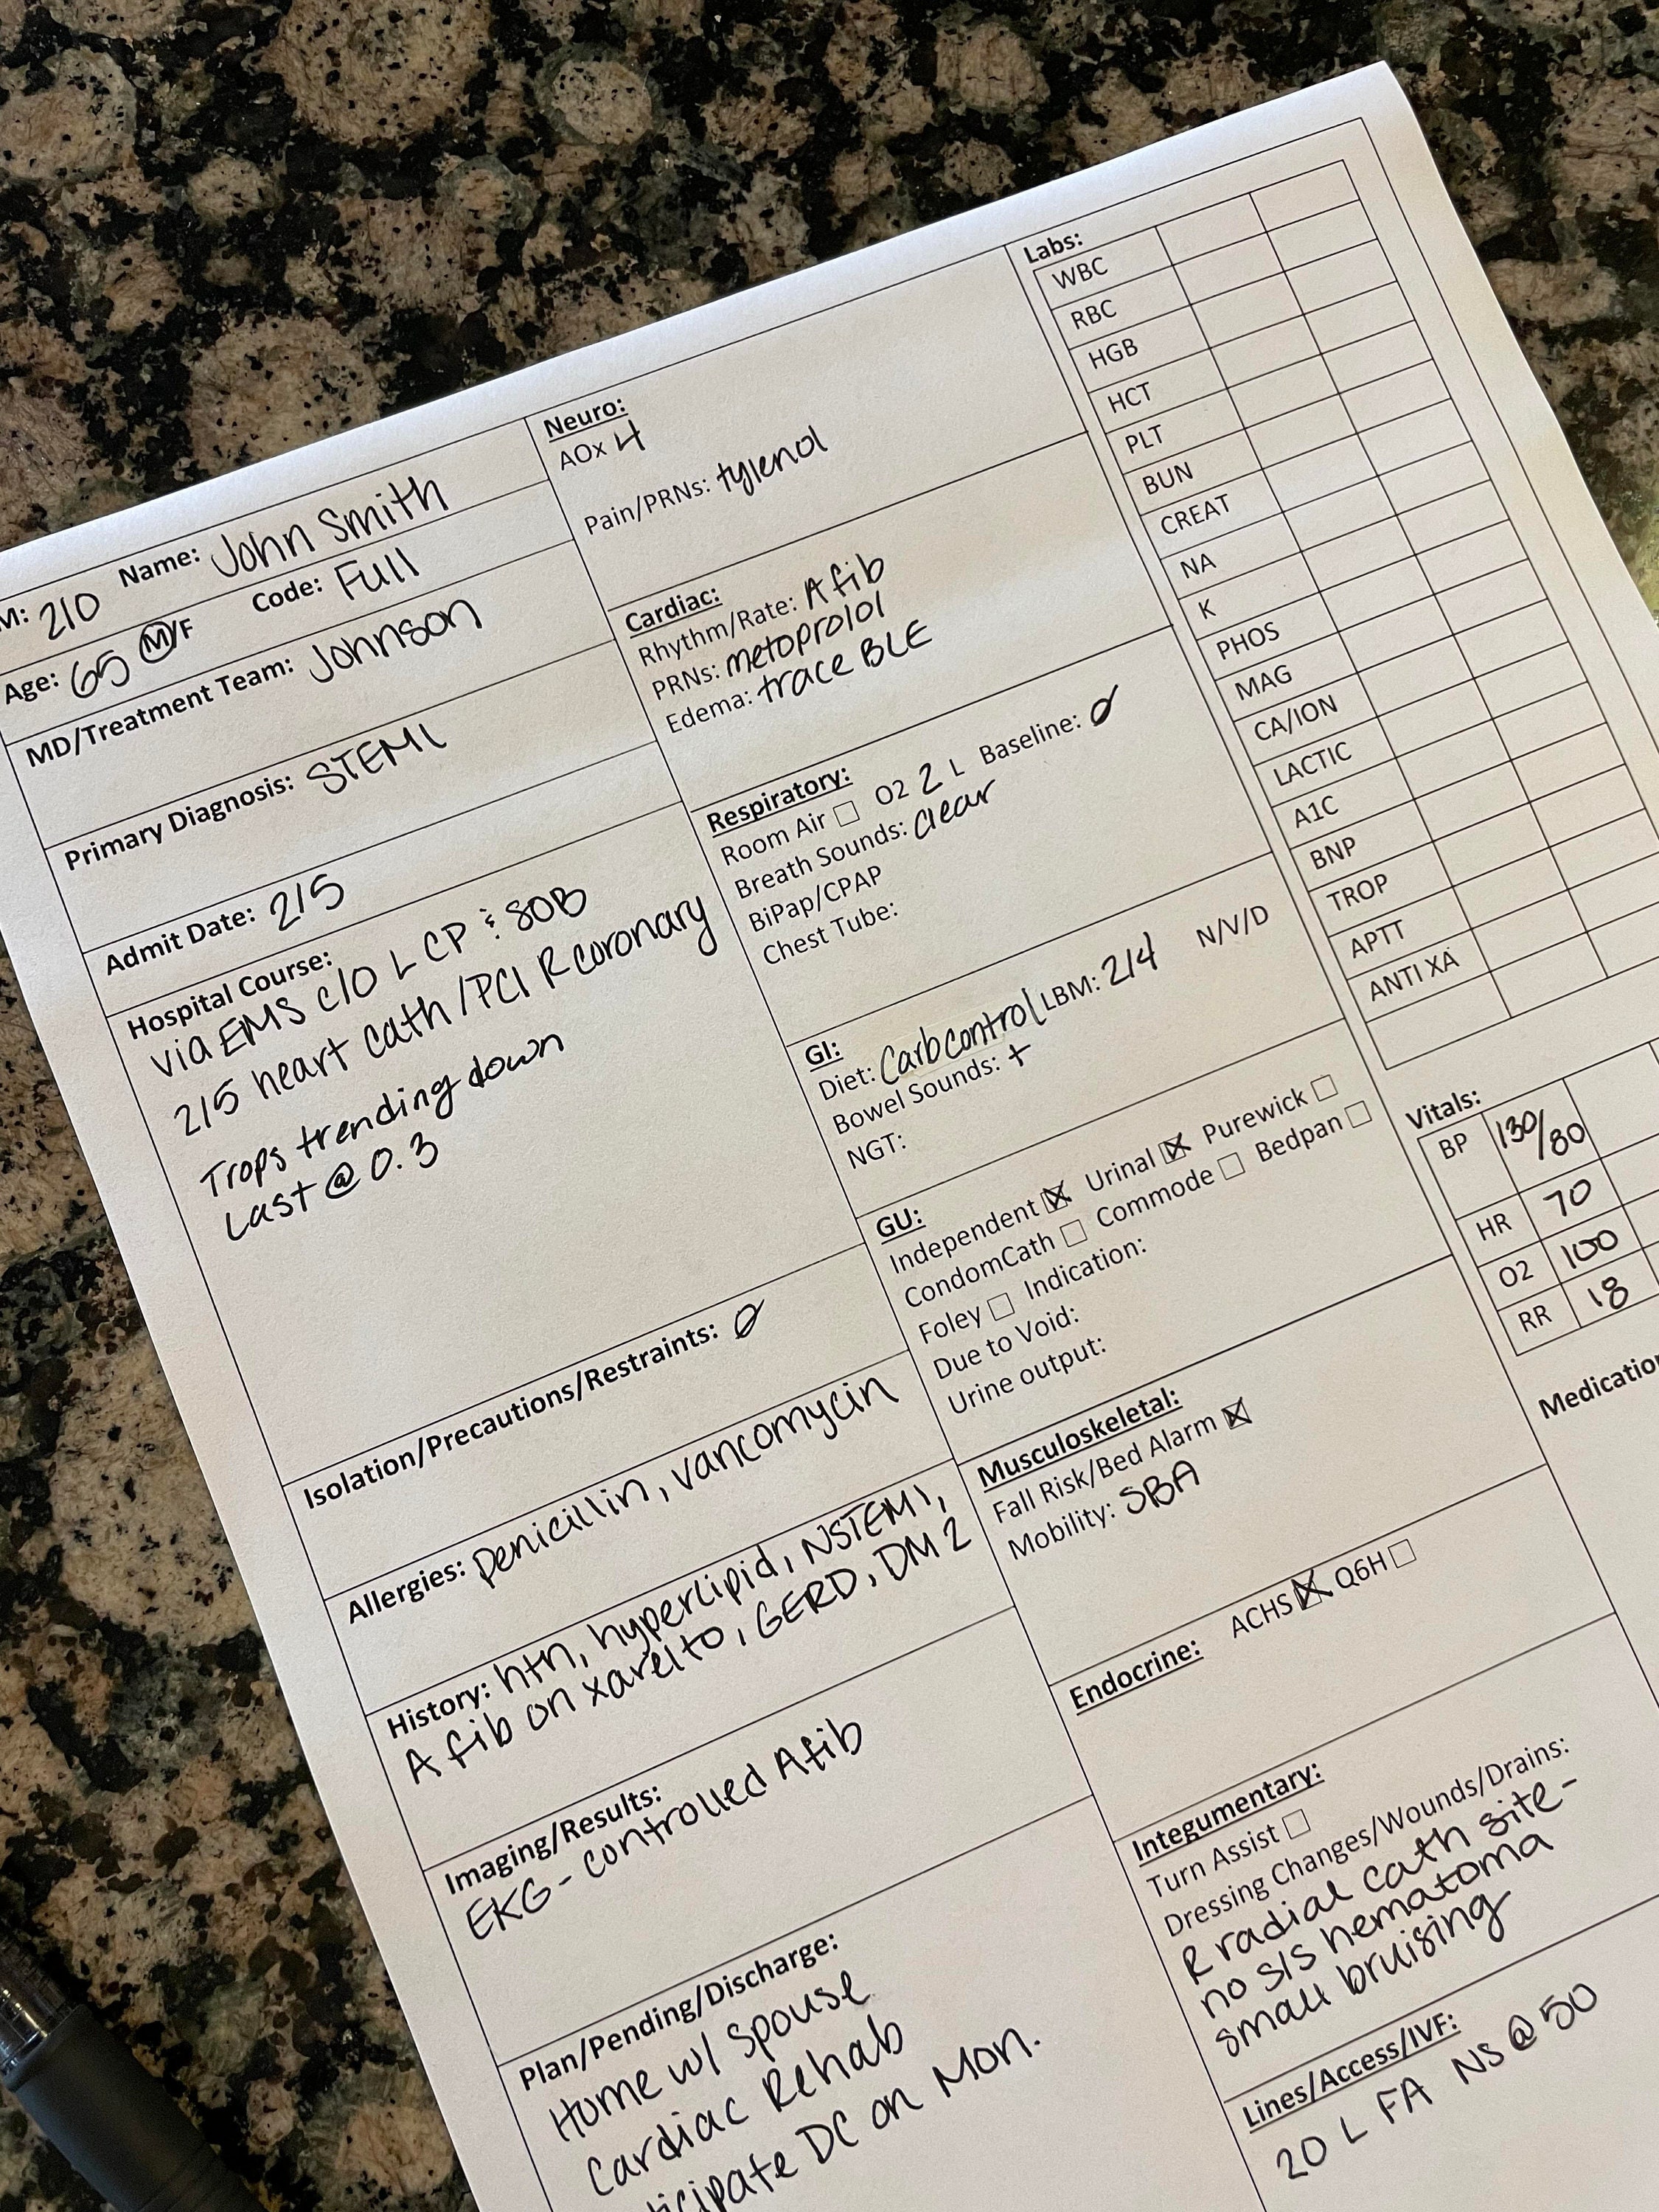 M: 210 Name: John Smith
Age: 65 M/F Code: Full
MD/Treatment Team: Johnson
Primary Diagnosis: STEMI
Admit Date: 2/5
Hospital Course:
via EMS c/o L CP & SOB
2/5 heart cath/PCI R coronary
Trops trending down
Last @ 0.3
Isolation/Precautions/Restraints: Ø
Allergies: penicillin, vancomycin
History: htn, hyperlipid, NSTEMI,
A fib on xarelto, GERD, DM 2
Imaging/Results:
EKG - controlled Afib
Plan/Pending/Discharge:
Home w/ spouse
Cardiac Rehab
ticipate DC on Mon.
Neuro:
AOx 4
Pain/PRNs: tylenol
Cardiac:
Rhythm/Rate: A fib
PRNs: metoprolol
Edema: trace BLE
Respiratory:
Room Air ☐ O2 2 L Baseline: Ø
Breath Sounds: clear
BiPap/CPAP
Chest Tube:
GI:
Diet: Carb control LBM: 2/4 N/V/D
Bowel Sounds: +
NGT:
GU:
Independent ☒ Urinal ☒ Purewick ☐
CondomCath ☐ Commode ☐ Bedpan ☐
Foley ☐ Indication:
Due to Void:
Urine output:
Musculoskeletal:
Fall Risk/Bed Alarm ☒
Mobility: SBA
ACHS ☒ Q6H ☐
Endocrine:
Integumentary:
Turn Assist ☐
Dressing Changes/Wounds/Drains:
R radial cath site -
no s/s hematoma
small bruising
Lines/Access/IVF:
20 L FA NS @ 50
Labs:
WBC
RBC
HGB
HCT
PLT
BUN
CREAT
NA
K
PHOS
MAG
CA/ION
LACTIC
A1C
BNP
TROP
APTT
ANTI XA
Vitals:
BP 130/80
HR 70
O2 100
RR 18
Medicatio